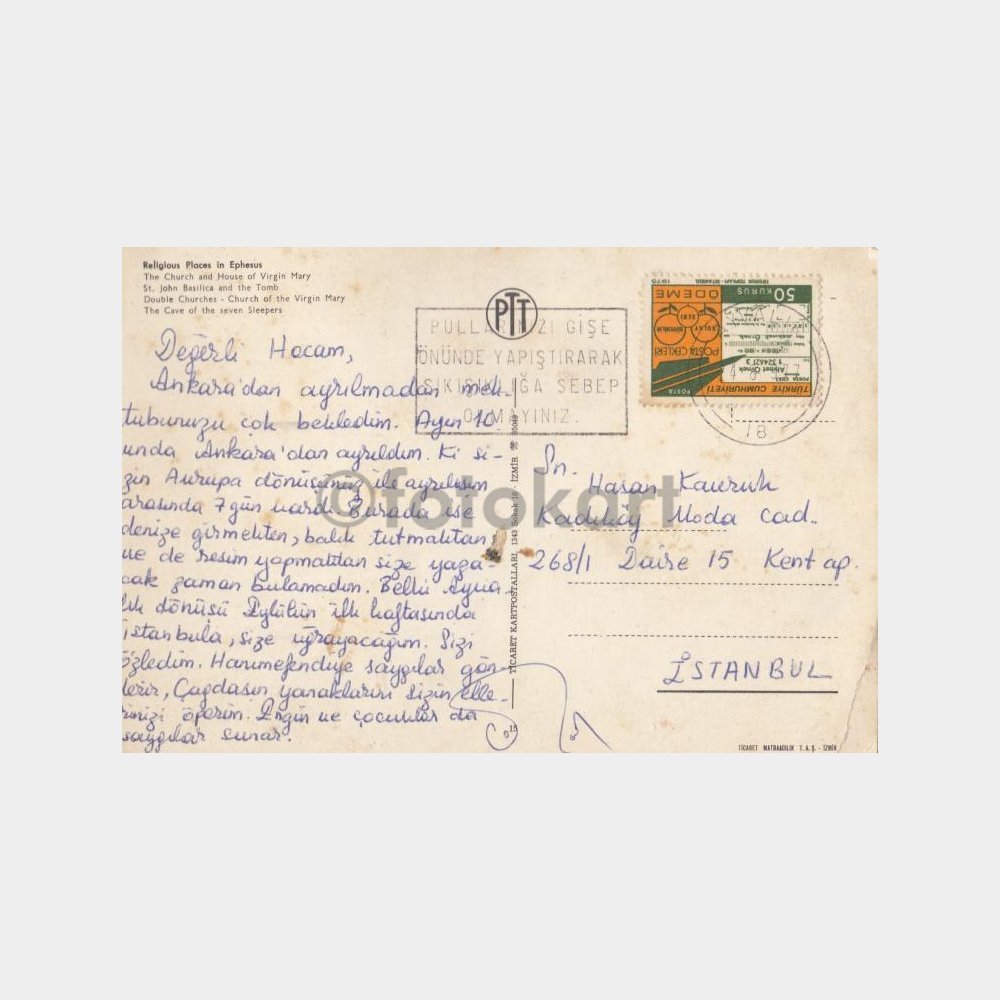 Religious Places in Ephesus
The Church and House of Virgin Mary
St. John Basilica and the Tomb
Double Churches - Church of the Virgin Mary
The Cave of the seven Sleepers
PTT
PULLARINIZI GİŞE
ÖNÜNDE YAPIŞTIRARAK
SIKIŞIKLIĞA SEBEP
OLMAYINIZ.
Değerli Hocam,
Ankara'dan ayrılmadan mek-
tubunuzu çok bekledim. Ayın 10
unda Ankara'dan ayrıldım. Ki si-
zin Avrupa dönüşünüz ile ayrılışım
arasında 7 gün vardı. Burada ise
denize girmekten, balık tutmaktan
ve de resim yapmaktan size yaza-
cak zaman bulamadım. Belki Ayva-
lık dönüşü Eylülün ilk haftasında
istanbula, size uğrayacağım. Sizi
özledim. Hanımefendiye saygılar gön-
derir, Çağdaşın yanaklarını sizin elle-
rinizi öperim. Engin ve çocuklar da
saygılar sunar.
50 KURUŞ
TÜRKİYE CUMHURİYETİ
POSTA
POSTA ÇEKLERİ
ÖDEME
1975
Ahmet Örnek
18
Sn.
Hasan Kavruk
Kadıköy Moda cad.
268/1 Daire 15 Kent ap.
İSTANBUL
TİCARET KARTPOSTALLARI, 1343 Sokak 10 - İZMİR
15
TİCARET MATBAACILIK T. A. Ş. - İZMİR
©fotokart